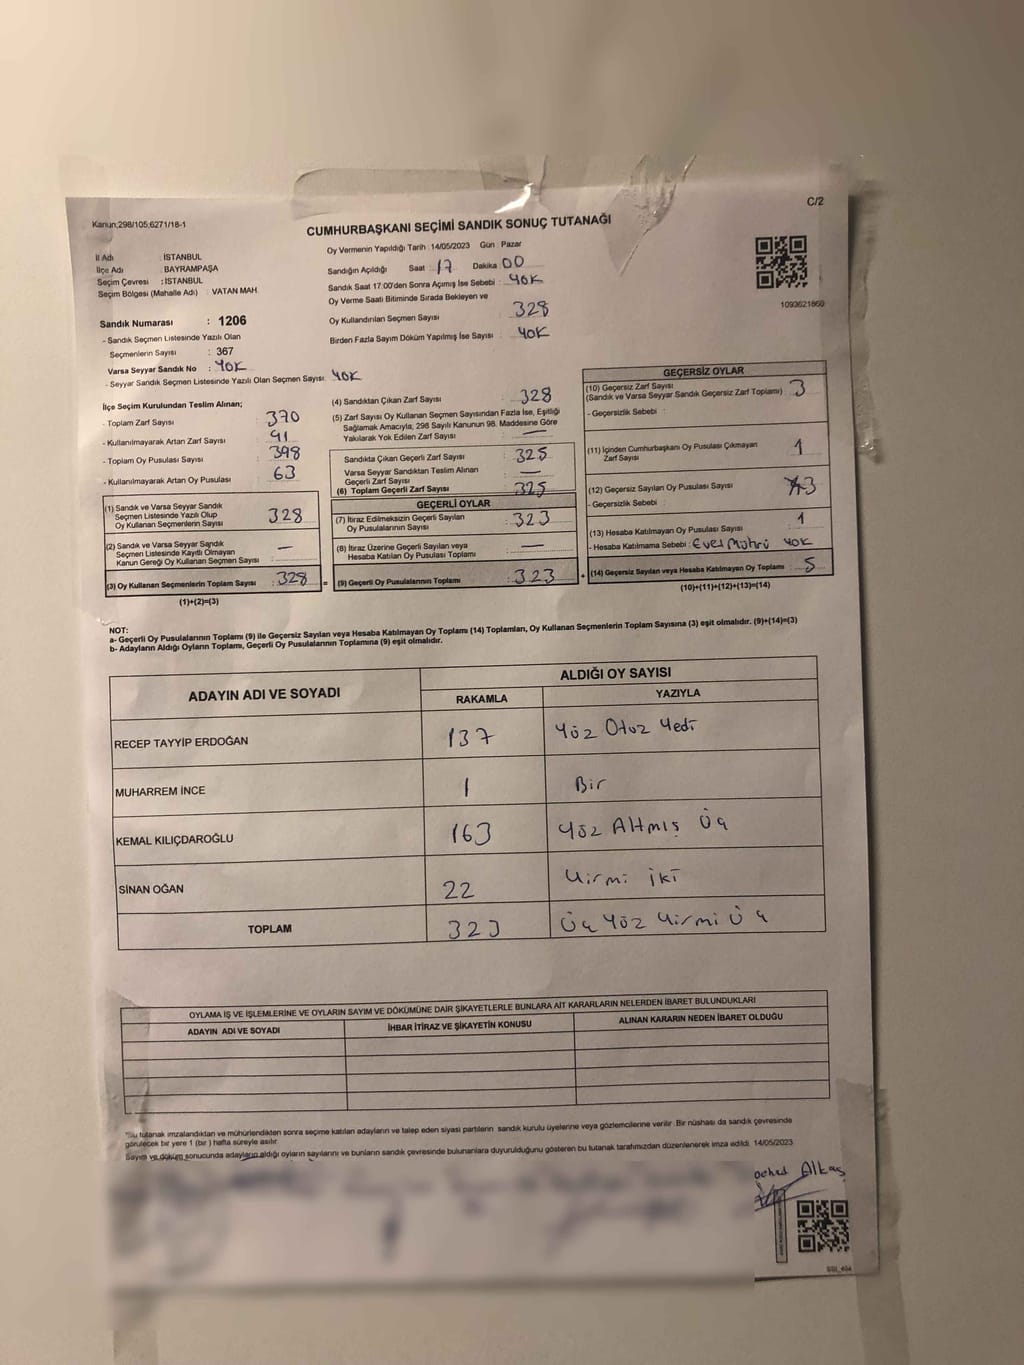 C/2
Kanun;298/105;6271/18-1
CUMHURBAŞKANI SEÇİMİ SANDIK SONUÇ TUTANAĞI
İl Adı : İSTANBUL
İlçe Adı : BAYRAMPAŞA
Seçim Çevresi : İSTANBUL
Seçim Bölgesi (Mahalle Adı) : VATAN MAH.
Sandık Numarası : 1206
- Sandık Seçmen Listesinde Yazılı Olan
Seçmenlerin Sayısı : 367
Varsa Seyyar Sandık No : YOK
- Seyyar Sandık Seçmen Listesinde Yazılı Olan Seçmen Sayısı: YOK
Oy Vermenin Yapıldığı Tarih : 14/05/2023 Gün : Pazar
Sandığın Açıldığı Saat : 17 Dakika : 00
Sandık Saat 17:00'den Sonra Açımış İse Sebebi : YOK
Oy Verme Saati Bitiminde Sırada Bekleyen ve
Oy Kullandırılan Seçmen Sayısı : 328
Birden Fazla Sayım Döküm Yapılmış İse Sayısı : YOK
1093621860
İlçe Seçim Kurulundan Teslim Alınan;
- Toplam Zarf Sayısı : 370
- Kullanılmayarak Artan Zarf Sayısı : 41
- Toplam Oy Pusulası Sayısı : 398
- Kullanılmayarak Artan Oy Pusulası : 63
(1) Sandık ve Varsa Seyyar Sandık
Seçmen Listesinde Yazılı Olup
Oy Kullanan Seçmenlerin Sayısı : 328
(2) Sandık ve Varsa Seyyar Sandık
Seçmen Listesinde Kayıtlı Olmayan
Kanun Gereği Oy Kullanan Seçmen Sayısı : —
(3) Oy Kullanan Seçmenlerin Toplam Sayısı : 328 =
(1)+(2)=(3)
(4) Sandıktan Çıkan Zarf Sayısı : 328
(5) Zarf Sayısı Oy Kullanan Seçmen Sayısından Fazla İse, Eşitliği
Sağlamak Amacıyla, 298 Sayılı Kanunun 98. Maddesine Göre
Yakılarak Yok Edilen Zarf Sayısı : —
Sandıkta Çıkan Geçerli Zarf Sayısı : 325
Varsa Seyyar Sandıktan Teslim Alınan
Geçerli Zarf Sayısı : —
(6) Toplam Geçerli Zarf Sayısı : 325
GEÇERLİ OYLAR
(7) İtiraz Edilmeksizin Geçerli Sayılan
Oy Pusulalarının Sayısı : 323
(8) İtiraz Üzerine Geçerli Sayılan veya
Hesaba Katılan Oy Pusulası Toplamı : —
(9) Geçerli Oy Pusulalarının Toplamı : 323 +
GEÇERSİZ OYLAR
(10) Geçersiz Zarf Sayısı
(Sandık ve Varsa Seyyar Sandık Geçersiz Zarf Toplamı) : 3
- Geçersizlik Sebebi :
(11) İçinden Cumhurbaşkanı Oy Pusulası Çıkmayan
Zarf Sayısı : 1
(12) Geçersiz Sayılan Oy Pusulası Sayısı : 3
- Geçersizlik Sebebi :
(13) Hesaba Katılmayan Oy Pusulası Sayısı : 1
- Hesaba Katılmama Sebebi : Evet Mührü YOK
(14) Geçersiz Sayılan veya Hesaba Katılmayan Oy Toplamı : 5
(10)+(11)+(12)+(13)=(14)
NOT:
a- Geçerli Oy Pusulalarının Toplamı (9) ile Geçersiz Sayılan veya Hesaba Katılmayan Oy Toplamı (14) Toplamları, Oy Kullanan Seçmenlerin Toplam Sayısına (3) eşit olmalıdır. (9)+(14)=(3)
b- Adayların Aldığı Oyların Toplamı, Geçerli Oy Pusulalarının Toplamına (9) eşit olmalıdır.
ADAYIN ADI VE SOYADI ALDIĞI OY SAYISI
RAKAMLA YAZIYLA
RECEP TAYYİP ERDOĞAN 137 Yüz Otuz Yedi
MUHARREM İNCE 1 Bir
KEMAL KILIÇDAROĞLU 163 Yüz Altmış Üç
SİNAN OĞAN 22 Yirmi İki
TOPLAM 323 Üç Yüz Yirmi Üç
OYLAMA İŞ VE İŞLEMLERİNE VE OYLARIN SAYIM VE DÖKÜMÜNE DAİR ŞİKAYETLERLE BUNLARA AİT KARARLARIN NELERDEN İBARET BULUNDUKLARI
ADAYIN ADI VE SOYADI İHBAR İTİRAZ VE ŞİKAYETİN KONUSU ALINAN KARARIN NEDEN İBARET OLDUĞU
*Bu tutanak imzalandıktan ve mühürlendikten sonra seçime katılan adayların ve talep eden siyasi partilerin sandık kurulu üyelerine veya gözlemcilerine verilir. Bir nüshası da sandık çevresinde
görülecek bir yere 1 (bir) hafta süreyle asılır.
Sayım ve döküm sonucunda adayların aldığı oyların sayılarını ve bunların sandık çevresinde bulunanlara duyurulduğunu gösteren bu tutanak tarafımızdan düzenlenerek imza edildi. 14/05/2023
Alkaş